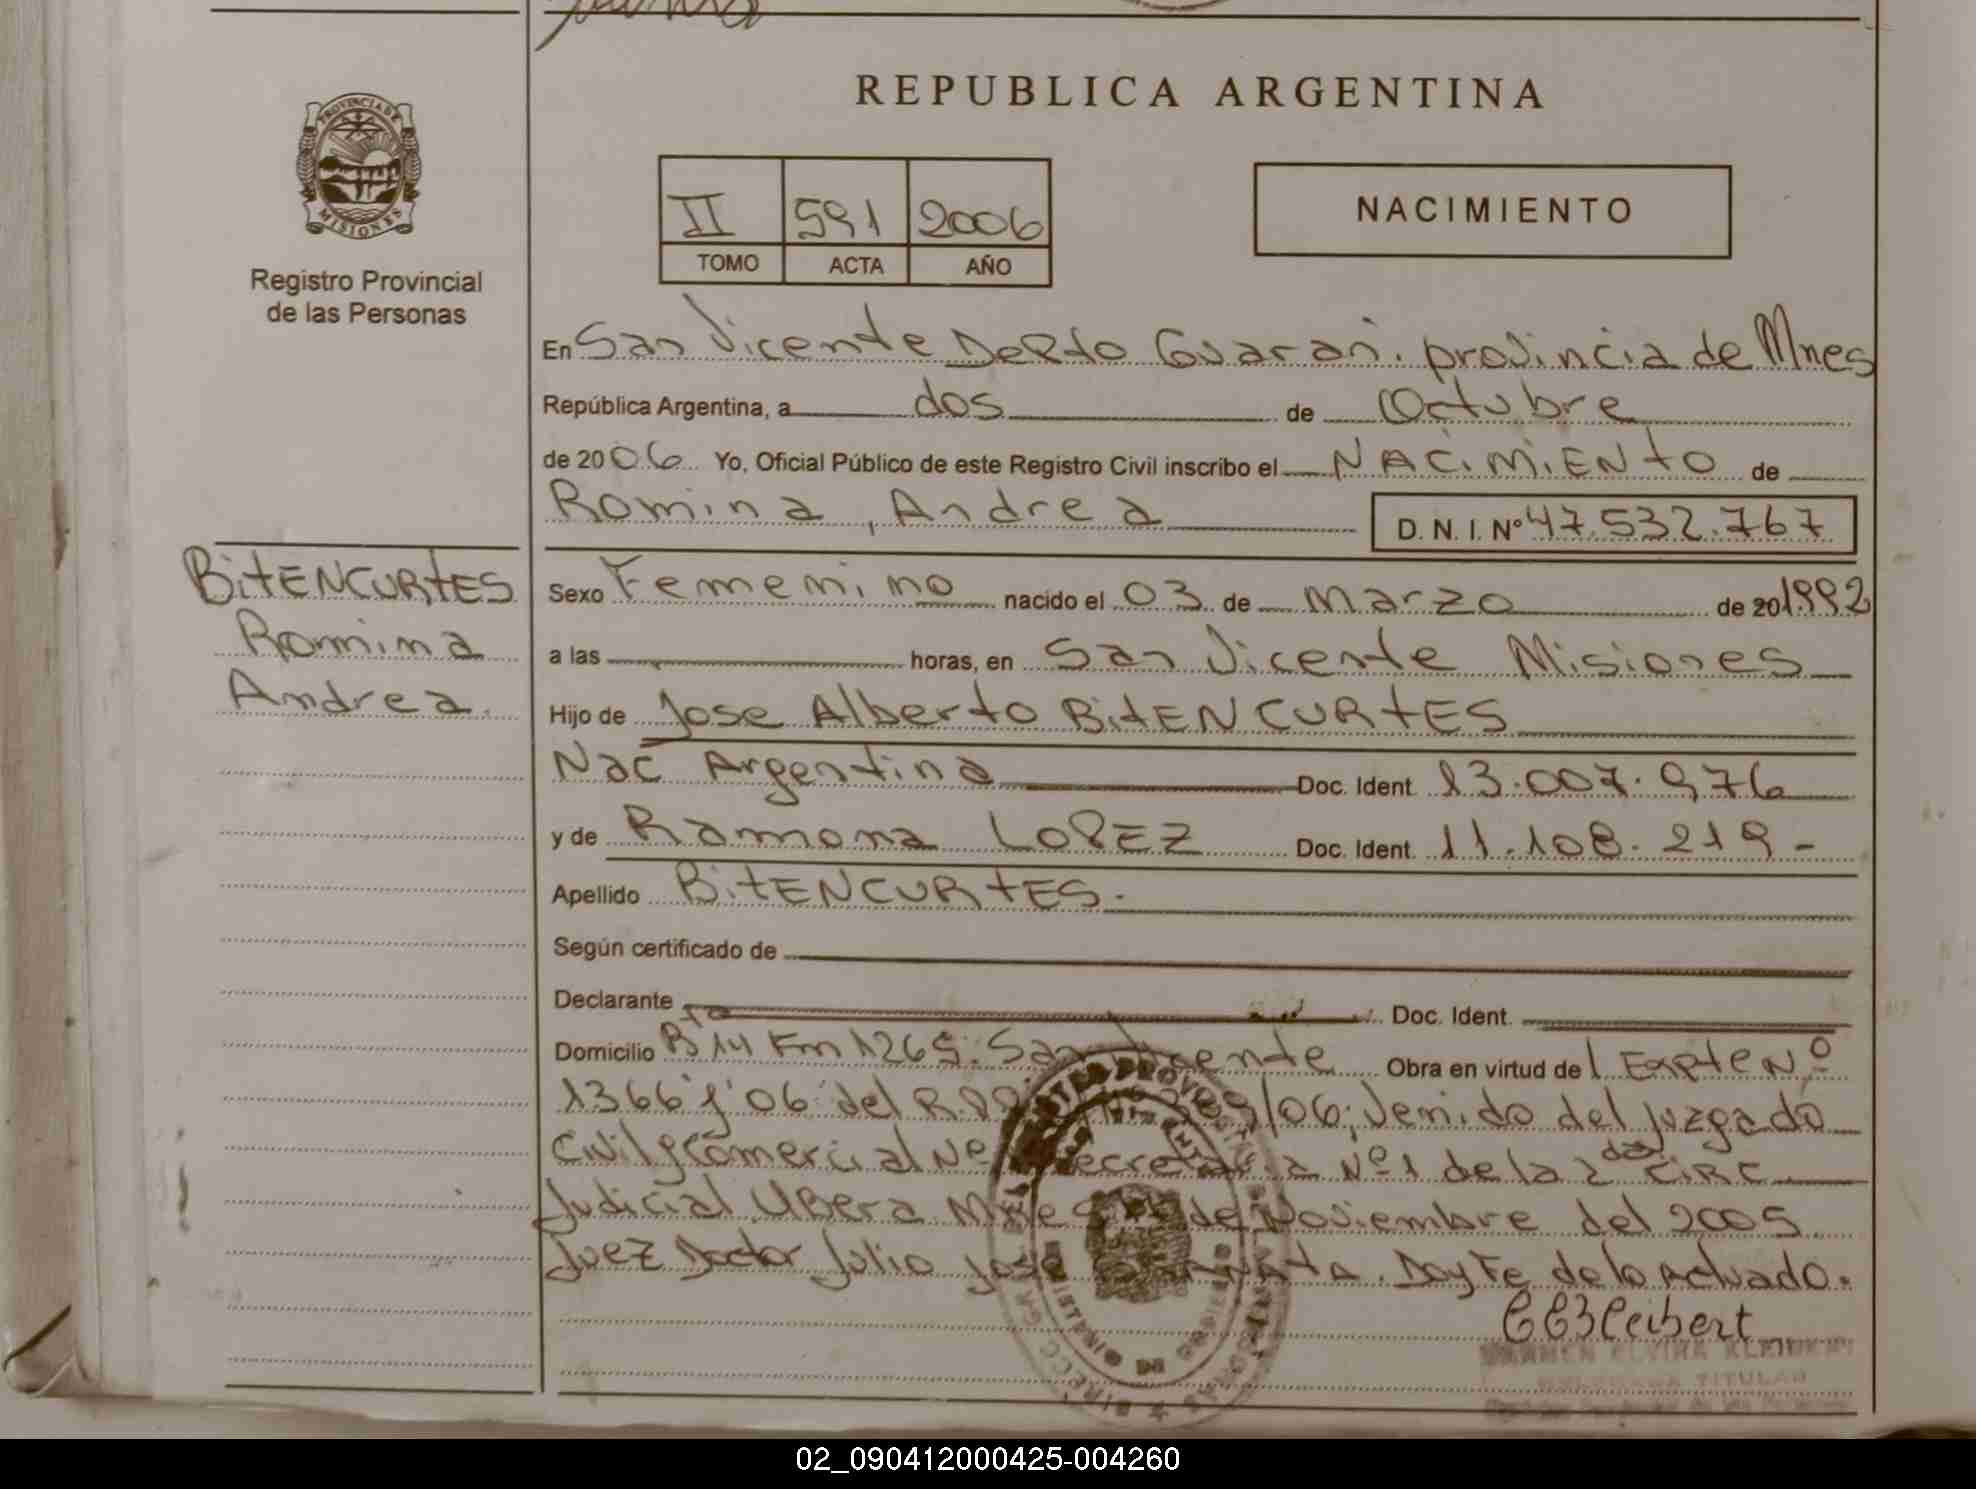 REPUBLICA ARGENTINA
PROVINCIA DE
MISIONES
Registro Provincial
de las Personas
II 591 2006
TOMO ACTA AÑO
NACIMIENTO
En San Vicente Depto Guarani. provincia de Mnes
República Argentina, a dos de Octubre
de 2006 Yo, Oficial Público de este Registro Civil inscribo el NACIMIENTO de
Romina, Andrea D. N. I. Nº 47.532.767
BitENCURtES
Romina
Andrea.
Sexo Femenino nacido el 03 de marzo de 201992
a las horas, en San Vicente Misiones
Hijo de Jose Alberto BitENCURtES
Nac Argentina Doc. Ident. 13.007.976
y de Ramona LOPEZ Doc. Ident. 11.108.219-
Apellido BitENCURtES.
Según certificado de
Declarante Doc. Ident.
Domicilio Km 1265. San Vicente Obra en virtud del Expte Nº
1366 06 del /06; Venido del Juzgado
Civil y Comercial Nº Secretaria Nº1 de la 2da CIRC
Judicial Obera Mnes de Noviembre del 2005.
Juez Doctor Julio Jose Doy Fe de lo Actuado.
TITULAR
02_090412000425-004260